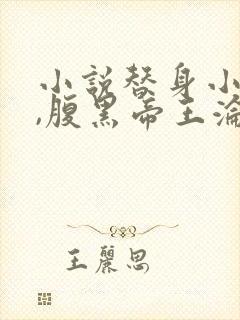 小说替身小
,腹黑帝王淪
王麗思